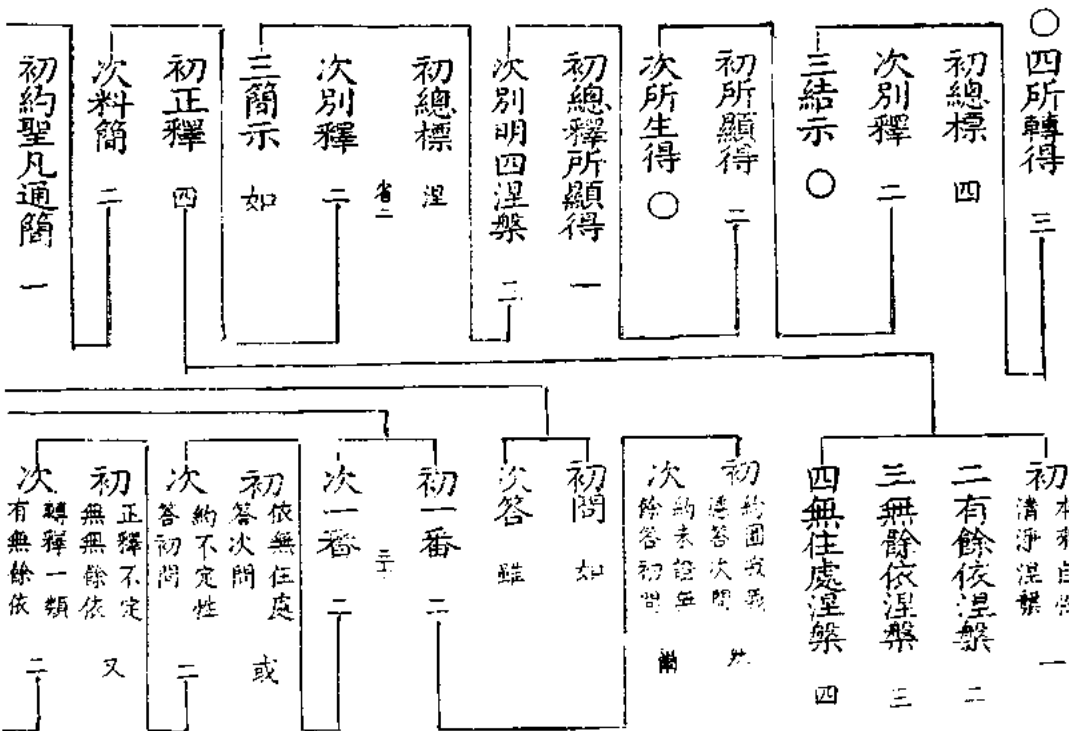 ○四所轉得 三
初總標 四
次別釋 二
三結示 ○
初所顯得 二
次所生得 ○
初總釋所顯得 一
次別明四涅槃 二
初總標 涅
次別釋 二
三簡示 如
初正釋 四
次料簡 二
初約聖凡通簡 一
初 本來自性
清淨涅槃 一
二有餘依涅槃 二
三無餘依涅槃 三
四無住處涅槃 四
初 約圓寂義
答次問
次 約未證無
餘答初問
初問 如
次答 雖
初一番 二
次一番 二
初 依無住處
答次問 或
次 約不定性
答初問 二
初 正釋不定
無無餘依 又
次 轉釋一類
有無餘依 二